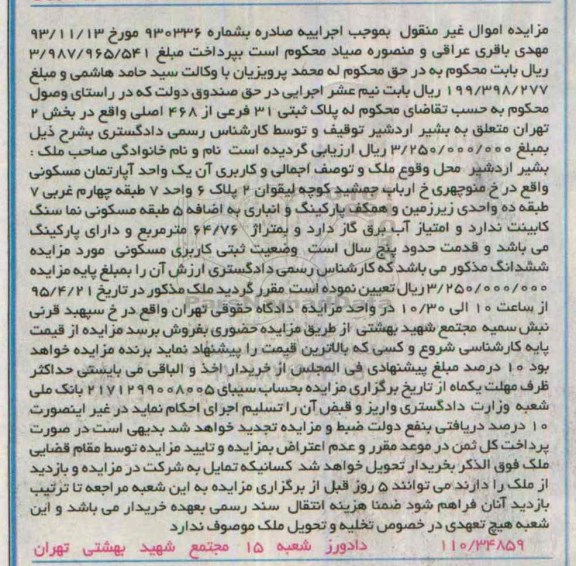 مزایده اموال غیر منقول بموجب اجراییه صادره بشماره ۹۳۰۳۳۶ مورخ ۹۳/۱۱/۱۳
مهدی باقری عراقی و منصوره صیاد محکوم است بپرداخت مبلغ ۳/۹۸۷/۹۶۵/۵۴۱
ریال بابت محکوم به در حق محکوم له محمد پرویزیان با وکالت سید حامد هاشمی و مبلغ
۱۹۹/۳۹۸/۲۷۷ ریال بابت نیم عشر اجرایی در حق صندوق دولت که در راستای وصول
محکوم به حسب تقاضای محکوم له پلاک ثبتی ۳۱ فرعی از ۴۶۸ اصلی واقع در بخش ۲
تهران متعلق به بشیر اردشیر توقیف و توسط کارشناس رسمی دادگستری بشرح ذیل
بمبلغ ۳/۲۵۰/۰۰۰/۰۰۰ ریال ارزیابی گردیده است نام و نام خانوادگی صاحب ملک :
بشیر اردشیر محل وقوع ملک و توصف اجمالی و کاربری آن یک واحد آپارتمان مسکونی
واقع در خ منوچهری خ ارباب جمشید کوچه لیقوان ۲ پلاک ۶ واحد ۷ طبقه چهارم غربی ۷
طبقه ده واحدی زیرزمین و همکف پارکینگ و انباری به اضافه ۵ طبقه مسکونی نما سنگ
کابینت ندارد و امتیاز آب برق گاز دارد و بمتراژ ۶۴/۷۶ مترمربع و دارای پارکینگ
می باشد و قدمت حدود پنج سال است وضعیت ثبتی کاربری مسکونی مورد مزایده
ششدانگ مذکور می باشد که کارشناس رسمی دادگستری ارزش آن را بمبلغ پایه مزایده
۳/۲۵۰/۰۰۰/۰۰۰ ریال تعیین نموده است مقرر گردید ملک مذکور در تاریخ ۹۵/۴/۲۱
از ساعت ۱۰ الی ۱۰/۳۰ در واحد مزایده دادگاه حقوقی تهران واقع در خ سپهبد قرنی
نبش سمیه مجتمع شهید بهشتی از طریق مزایده حضوری بفروش برسد مزایده از قیمت
پایه کارشناسی شروع و کسی که بالاترین قیمت را پیشنهاد نماید برنده مزایده خواهد
بود ۱۰ درصد مبلغ پیشنهادی فی المجلس از خریدار اخذ و الباقی می بایستی حداکثر
ظرف مهلت یکماه از تاریخ برگزاری مزایده بحساب سیبای ۲۱۷۱۲۹۹۰۰۸۰۰۵ بانک ملی
شعبه وزارت دادگستری واریز و قبض آن را تسلیم اجرای احکام نماید در غیر اینصورت
۱۰ درصد دریافتی بنفع دولت ضبط و مزایده تجدید خواهد شد بدیهی است در صورت
پرداخت کل ثمن در موعد مقرر و عدم اعتراض بمزایده و تایید مزایده توسط مقام قضایی
ملک فوق الذکر بخریدار تحویل خواهد شد کسانیکه تمایل به شرکت در مزایده و بازدید
از ملک را دارند می توانند ۵ روز قبل از برگزاری مزایده به این شعبه مراجعه تا ترتیب
بازدید آنان فراهم شود ضمنا هزینه انتقال سند رسمی بعهده خریدار می باشد و این
شعبه هیچ تعهدی در خصوص تخلیه و تحویل ملک موصوف ندارد
۱۱۰/۳۴۸۵۹ دادورز شعبه ۱۵ مجتمع شهید بهشتی تهران